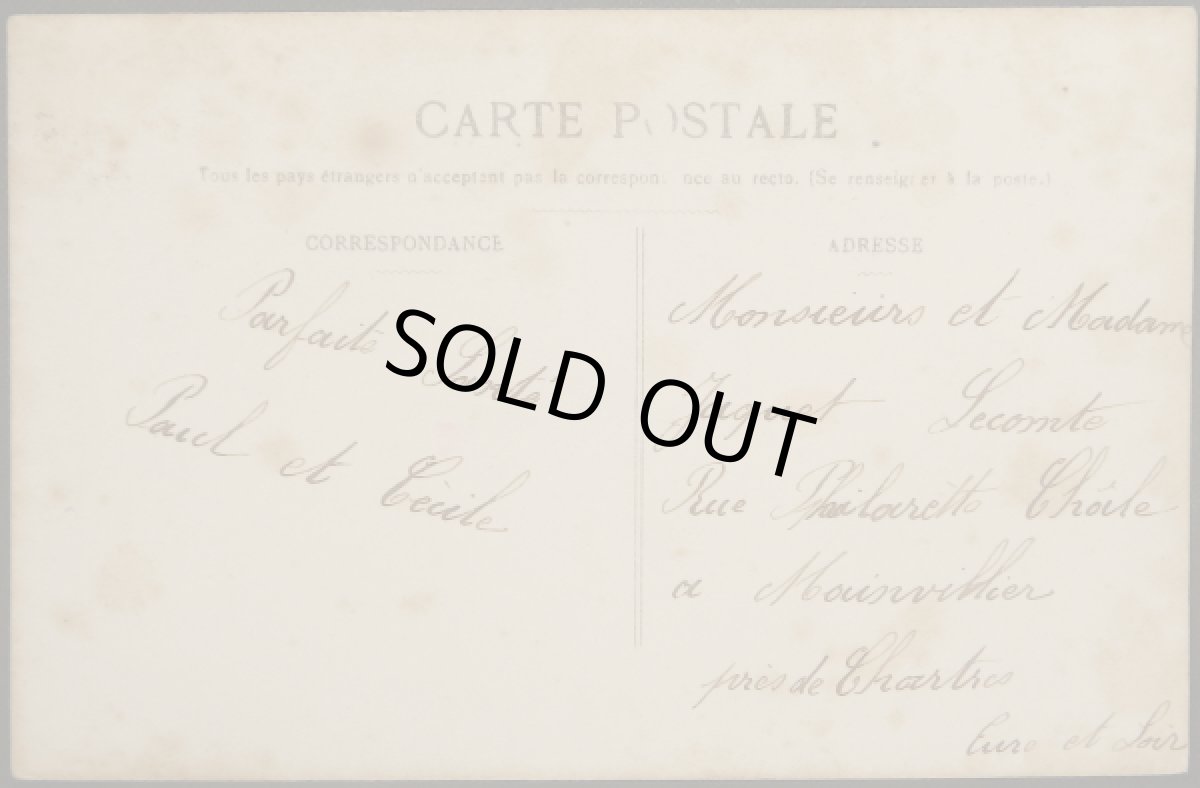 CARTE POSTALE
Tous les pays étrangers n'acceptent pas la correspondance au recto. (Se renseigner à la poste.)
CORRESPONDANCE
Parfaite Santé
Paul et Cécile
SOLD OUT
ADRESSE
Monsieurs et Madame
Lecomte
Rue Chôile
a Mainvillier
près de Chartres
Eure et Loir